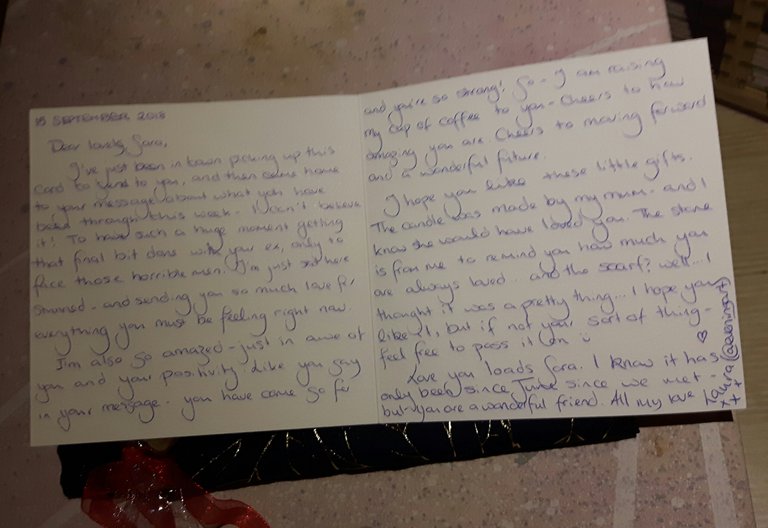 15 SEPTEMBER 2018
Dear lovely Sara,
I've just been in town picking up this
card to send to you, and then come home
to your message about what you have
been through this week. I can't believe
it! To have such a huge moment getting
that final bit done with your ex, only to
face those horrible men. I'm just sat here
stunned - and sending you so much love for
everything you must be feeling right now.
I'm also so amazed - just in awe of
you and your positivity. Like you say
in your message - you have come so far
and you're so strong! So - I am raising
my cup of coffee to you - Cheers to how
amazing you are. Cheers to moving forward
and a wonderful future.
I hope you like these little gifts.
The candle was made by my mum - and I
know she would have loved you. The stone
is from me to remind you how much you
are always loved... and the scarf? well... I
thought it was a pretty thing... I hope you
like it, but if not your sort of thing -
feel free to pass it on
Love you loads Sara. I know it has
only been since June since we met -
but you are a wonderful friend. All my love